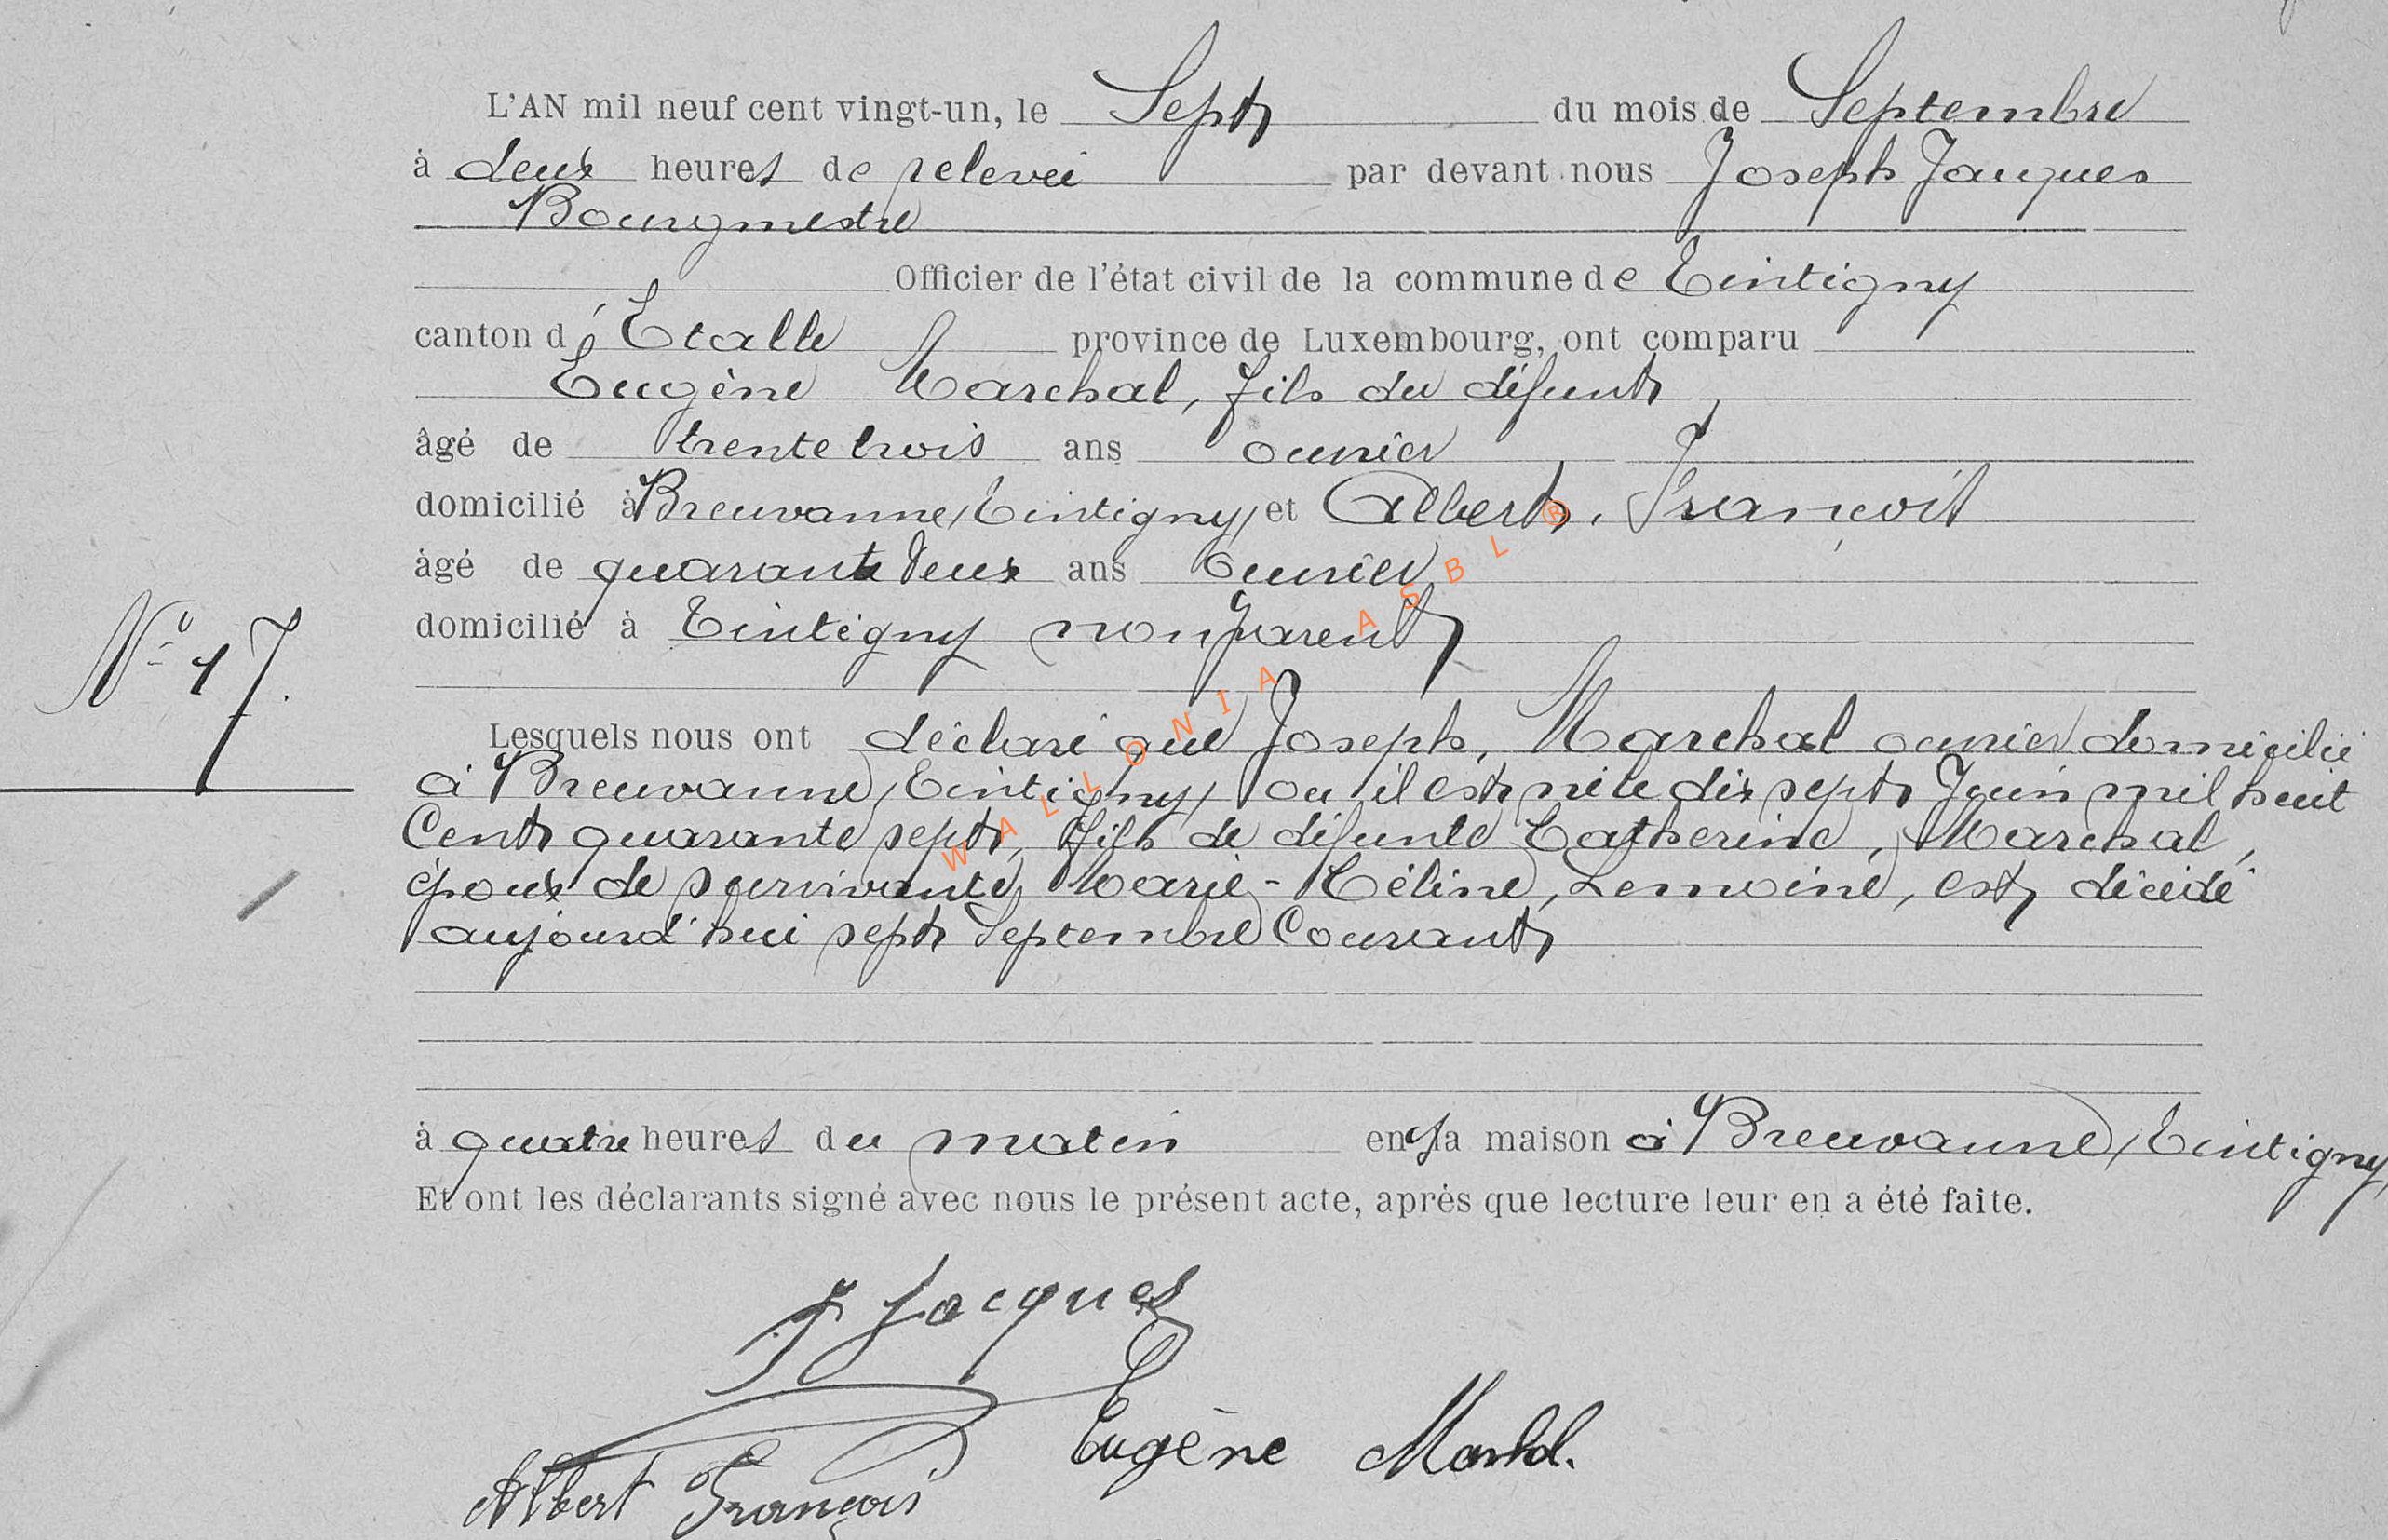 L'AN mil neuf cent vingt-un, le Sept du mois de Septembre
à deux heures de relevée par devant nous Joseph Jacques
Bourgmestre
Officier de l'état civil de la commune de Tintigny
canton d'Etalle province de Luxembourg, ont comparu
Eugène Marchal, fils du défunt,
âgé de trente trois ans ouvrier
domicilié à Breuvanne, Tintigny, et Albert, François
âgé de quarante deux ans Ouvrier
domicilié à Tintigny non parent
N° 17.
Lesquels nous ont déclaré que Joseph, Marchal ouvrier domicilié
à Breuvanne (Tintigny) ou il est né le dix sept Juin mil huit
Cent quarante sept, fils de défunte Catherine, Marchal,
époux de survivante Marie-Céline, Lemoine, est décédé
aujourd'hui sept Septembre Courant
à quatre heures du matin en sa maison à Breuvanne, Tintigny,
Et ont les déclarants signé avec nous le présent acte, après que lecture leur en a été faite.
J Jacques
Eugène Marchal.
Albert François
WALLONIA ASBL ®